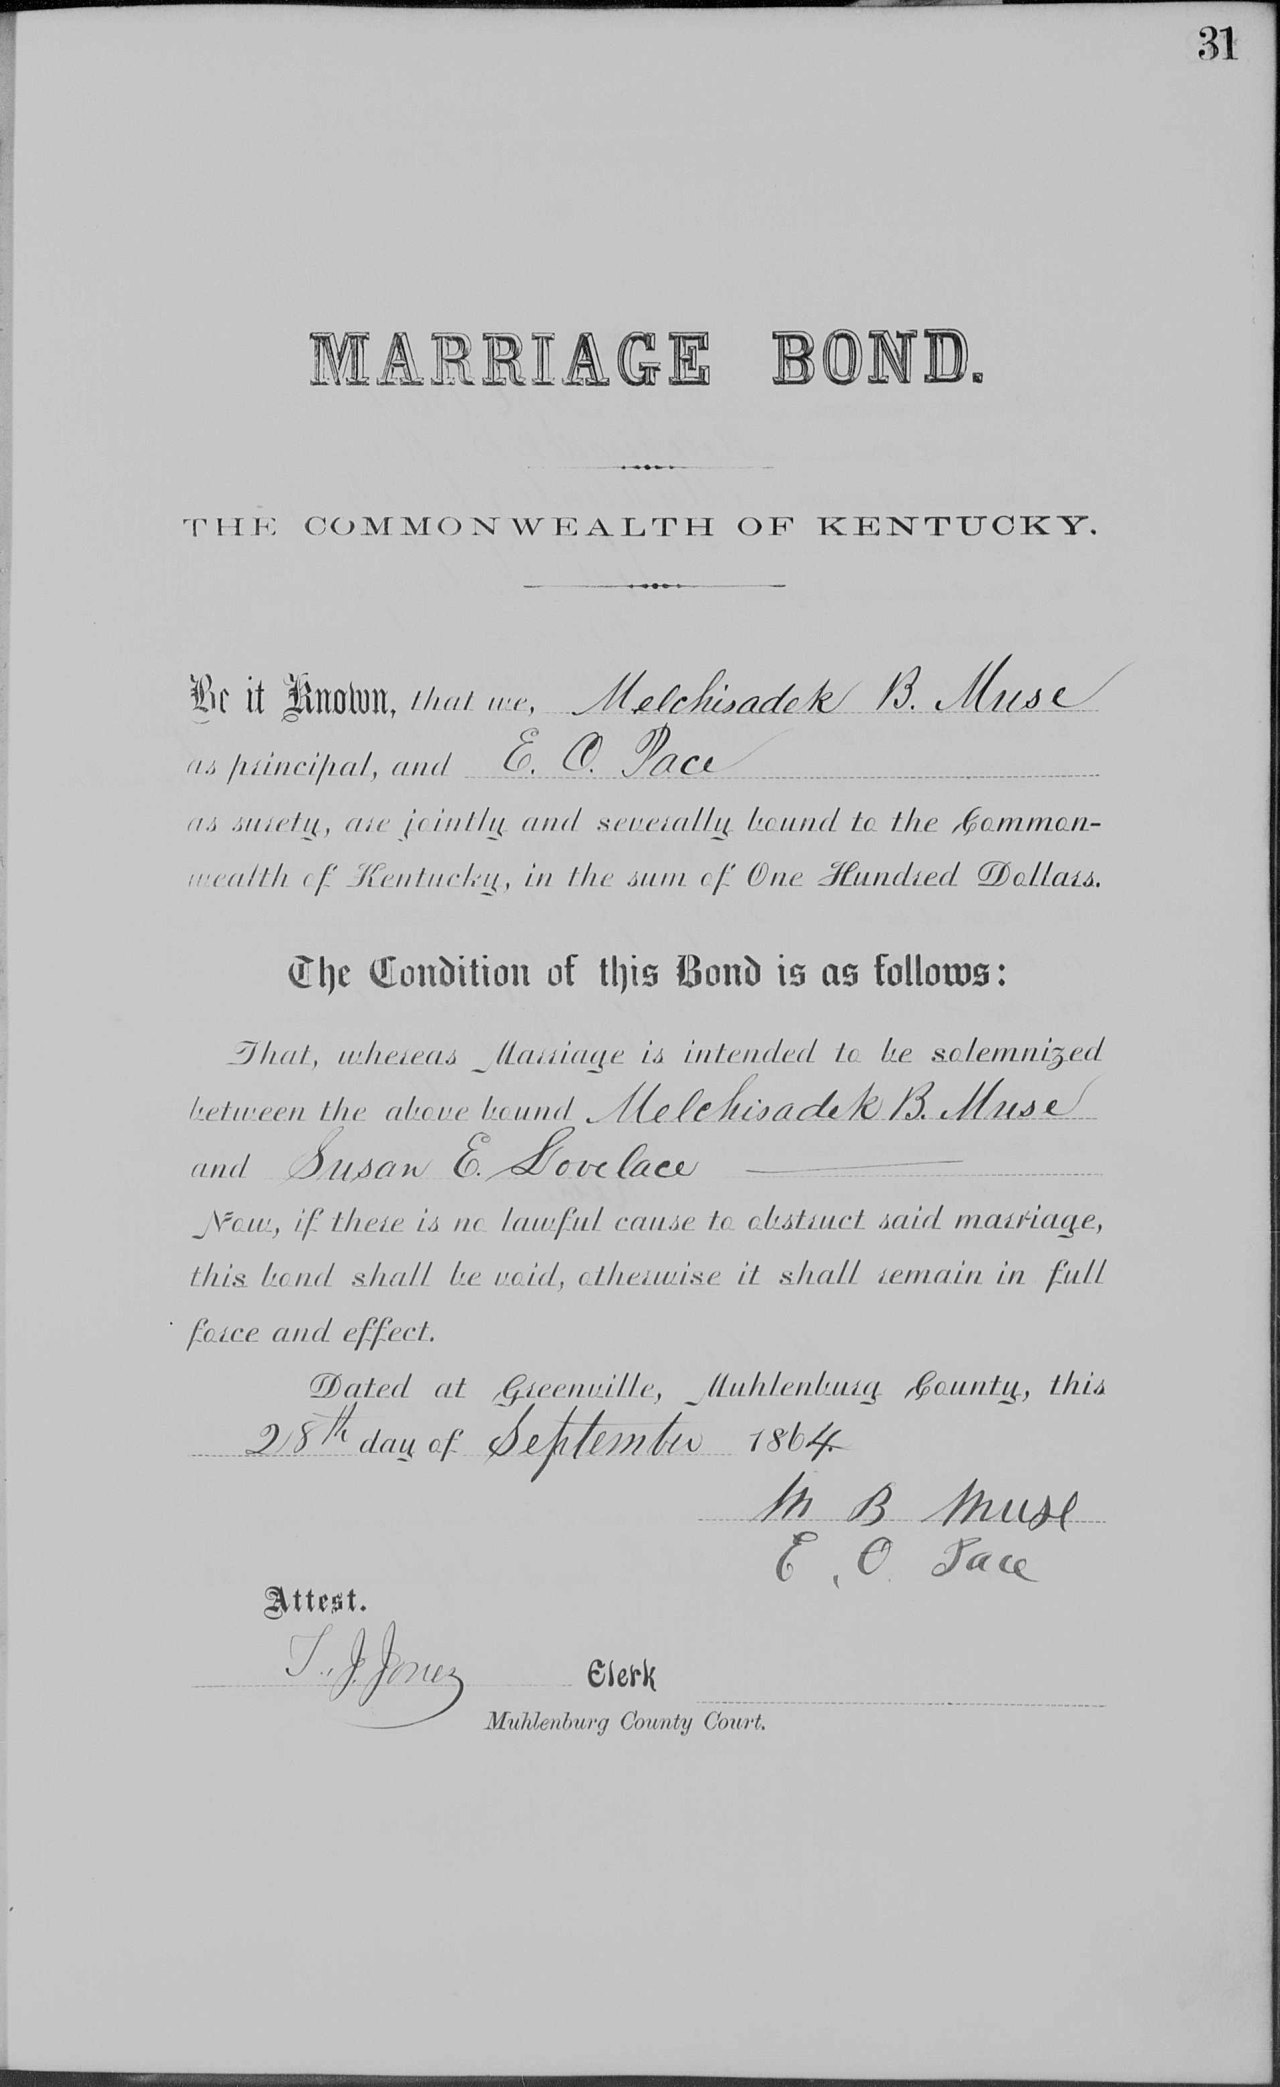 31
MARRIAGE BOND.
THE COMMONWEALTH OF KENTUCKY.
Be it Known, that we, Melchisadek B. Muse
as principal, and E. O. Pace
as surety, are jointly and severally bound to the Common-
wealth of Kentucky, in the sum of One Hundred Dollars.
The Condition of this Bond is as follows:
That, whereas Marriage is intended to be solemnized
between the above bound Melchisadek B. Muse
and Susan E. Lovelace
Now, if there is no lawful cause to obstruct said marriage,
this bond shall be void, otherwise it shall remain in full
force and effect.
Dated at Greenville, Muhlenburg County, this
28th day of September 1864.
M B Muse
E. O. Pace
Attest.
T. J. Jones Clerk
Muhlenburg County Court.